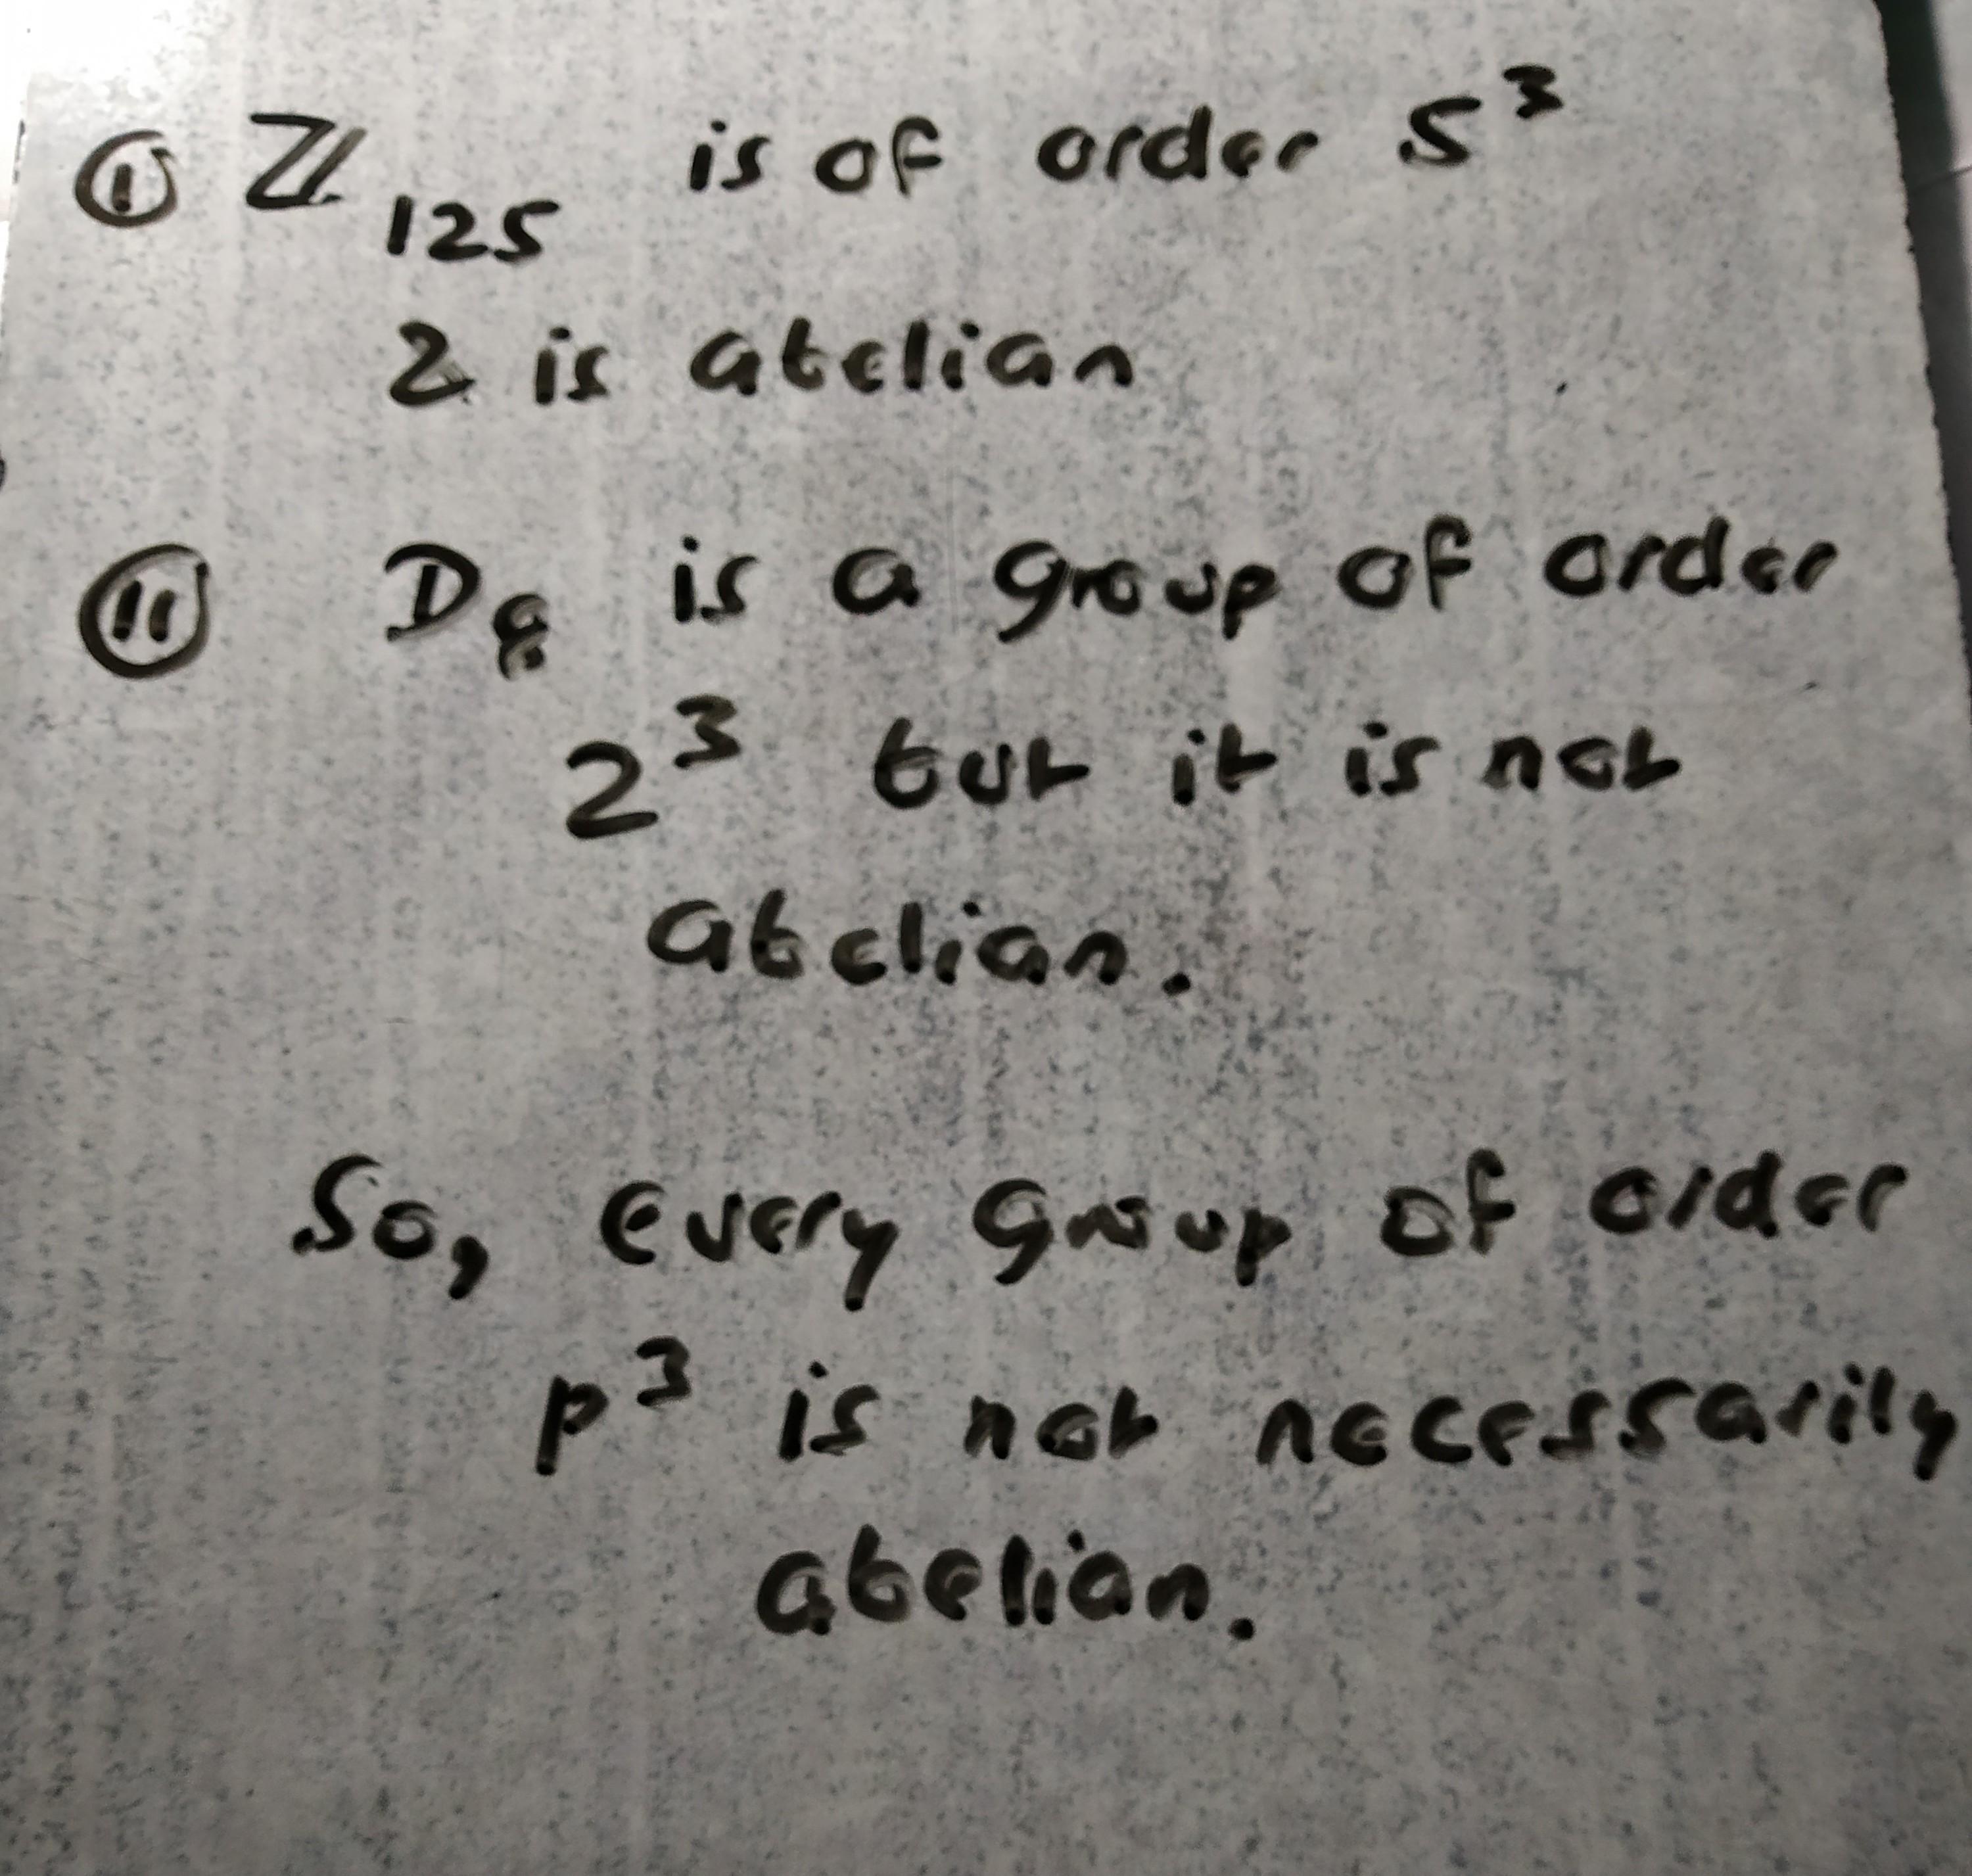 ① ℤ₁₂₅ is of order 5³
& is abelian
⑪ D₈ is a group of order
2³ but it is not
abelian.
So, every group of order
p³ is not necessarily
abelian.